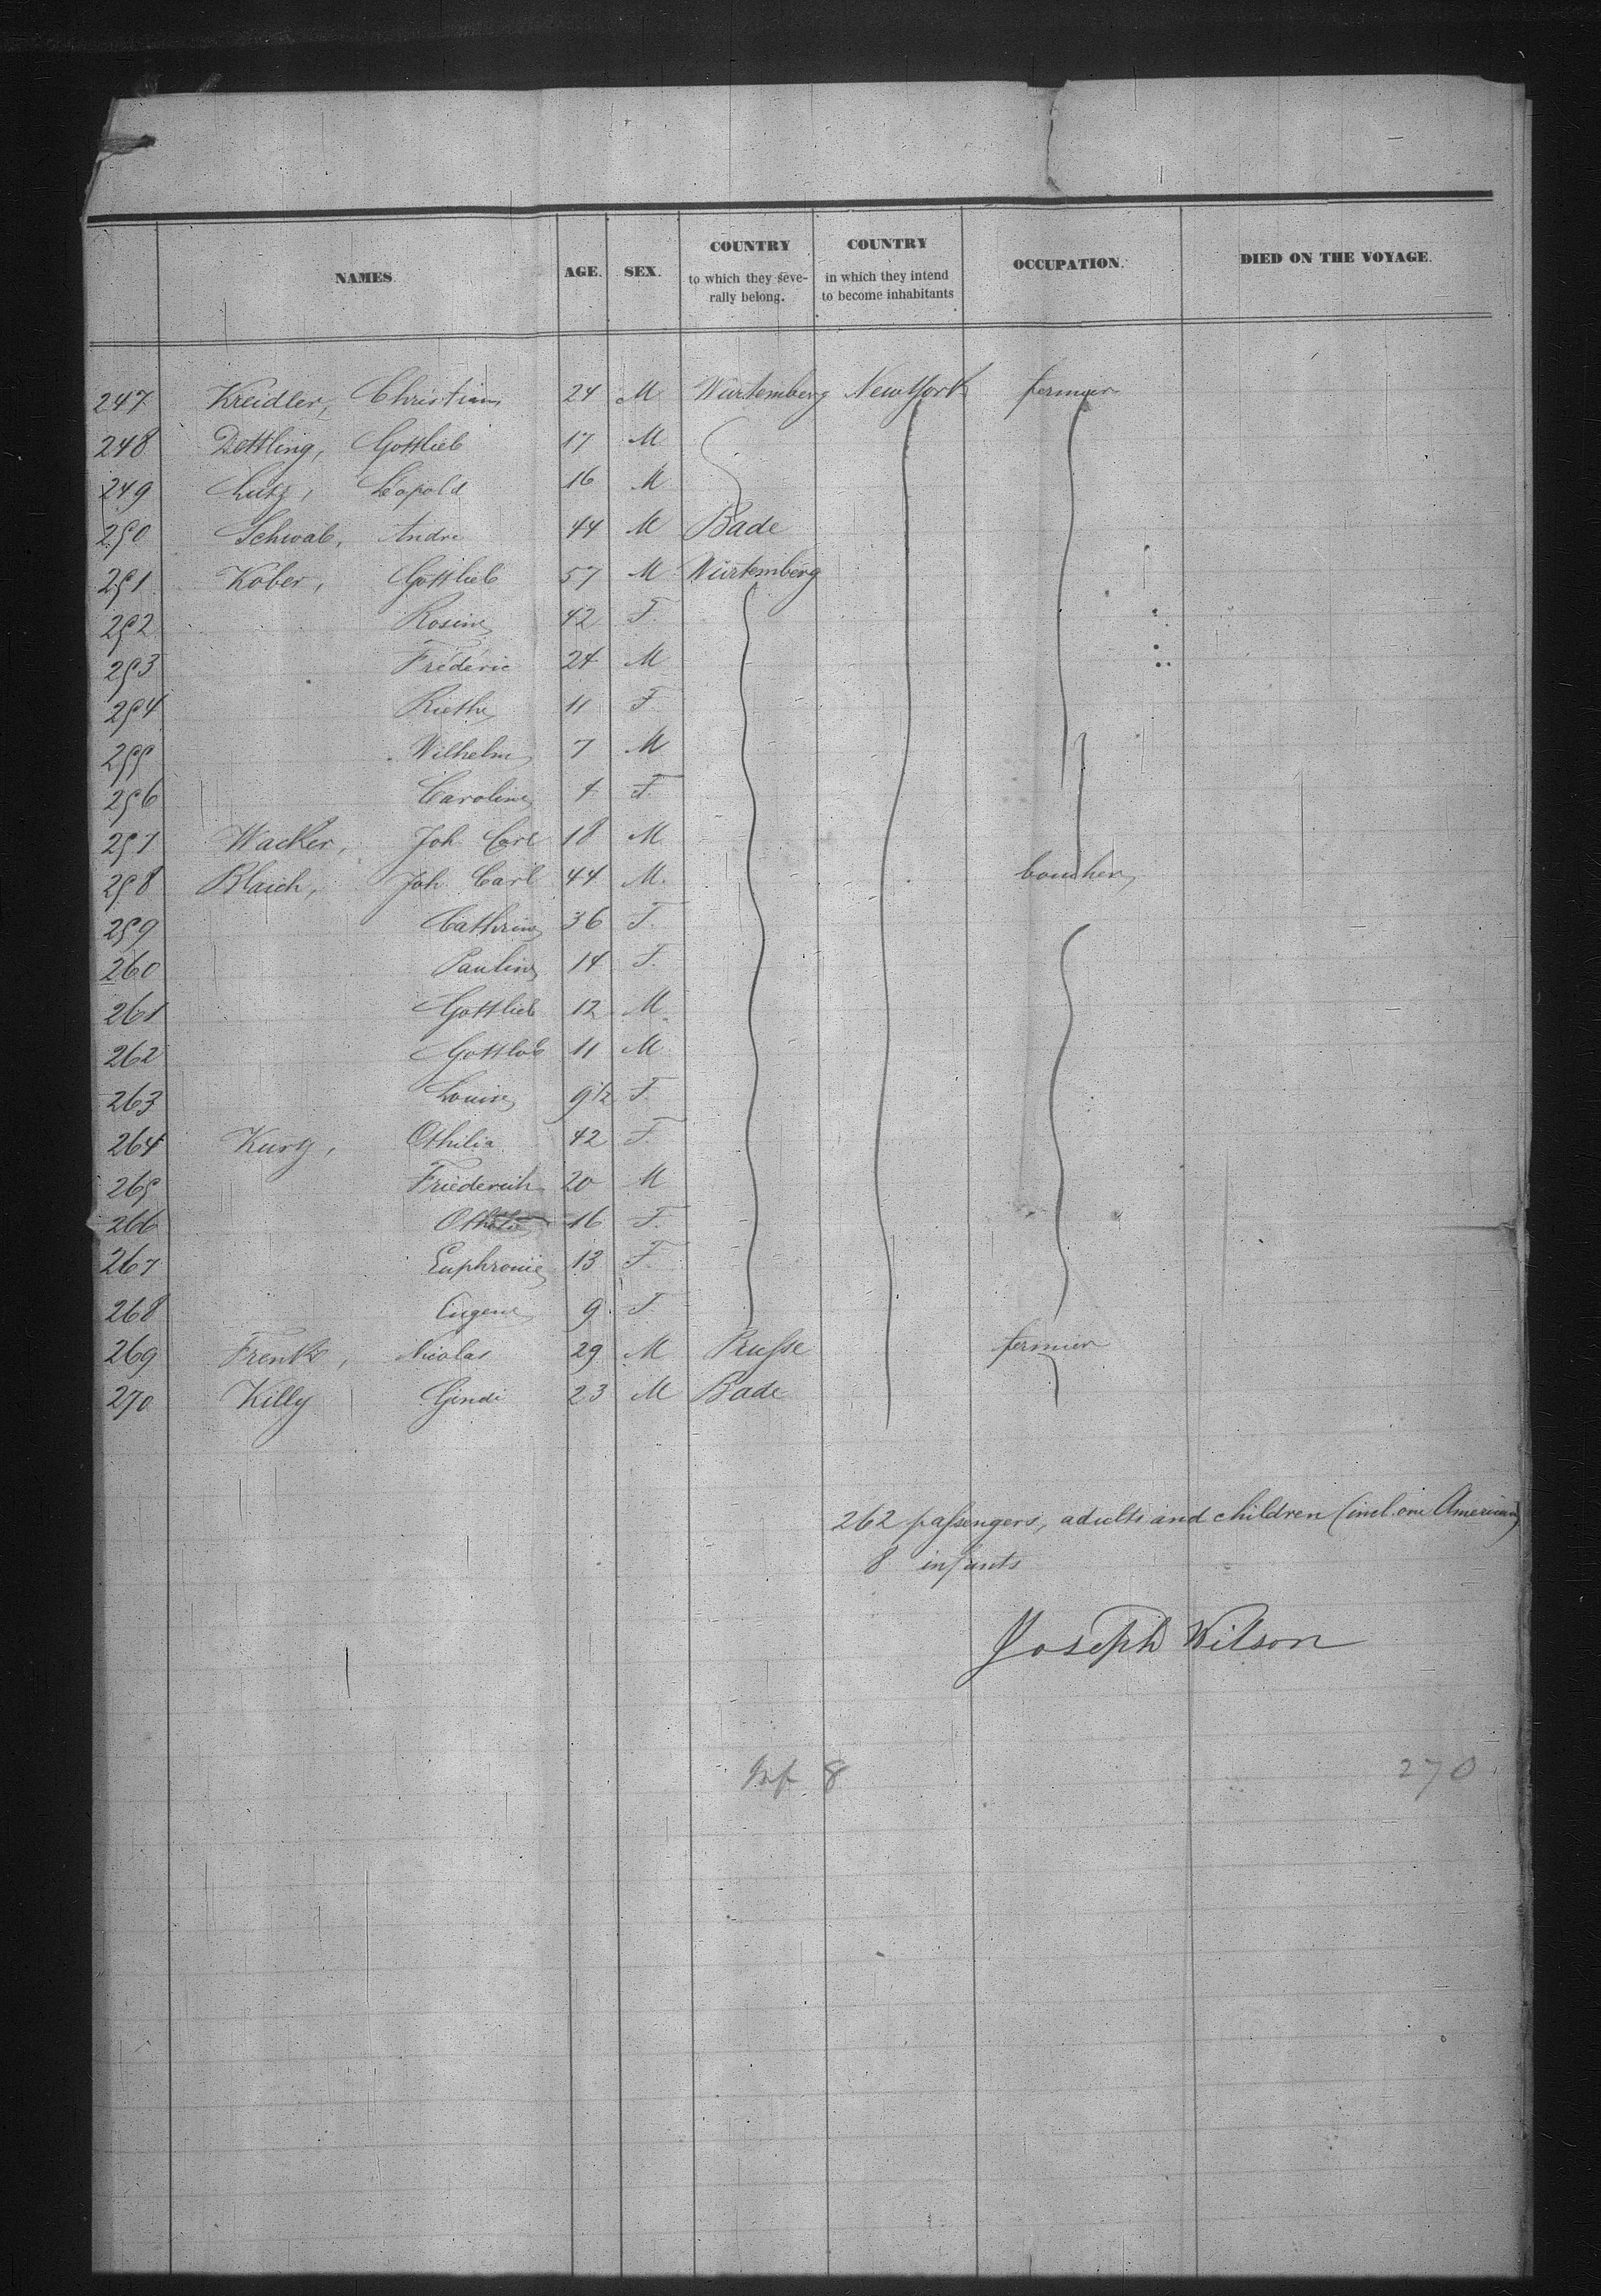 NAMES. AGE. SEX. COUNTRY to which they severally belong. COUNTRY in which they intend to become inhabitants OCCUPATION. DIED ON THE VOYAGE.
247 Kreidler, Christian 24 M Würtemberg New York fermier
248 Dettling, Gottlieb 17 M
249 Lutz, Léopold 16 M
250 Schwab, André 44 M Bade
251 Kober, Gottlieb 57 M Würtemberg
252 Rosine 42 F.
253 Fréderic 24 M
254 11 F.
255 Wilhelm 7 M
256 Caroline 4 F.
257 Wacker, Joh. Carl 18 M
258 Blaich, Joh. Carl 44 M. boucher
259 Cathrine 36 F.
260 Pauline 14 F.
261 Gottlieb 12 M.
262 Gottlob 11 M
263 Louise 9 1/2 F.
264 Kurtz, Othilia 42 F.
265 Friederich 20 M
266 16 F.
267 Euphronie 13 F.
268 Eugene 9 F.
269 Frenk, Nicolas 29 M Prusse fermier
270 Killy 23 M Bade
262 passengers, adults and children (incl. one American)
8 infants
Joseph Wilson
Inf 8 270